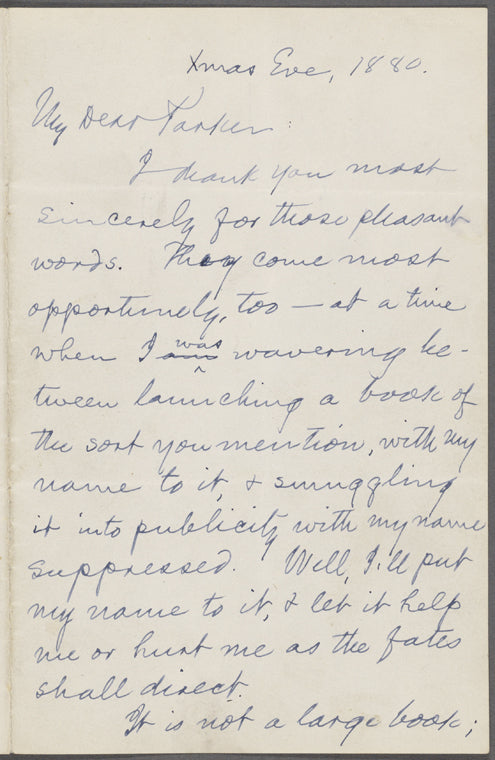 Xmas Eve, 1880.
My Dear Parker:
I thank you most
sincerely for those pleasant
words. They come most
opportunely, too — at a time
when I am was wavering be-
tween launching a book of
the sort you mention, with my
name to it, & smuggling
it into publicity with my name
suppressed. Well, I'll put
my name to it, & let it help
me or hurt me as the fates
shall direct.
It is not a large book;